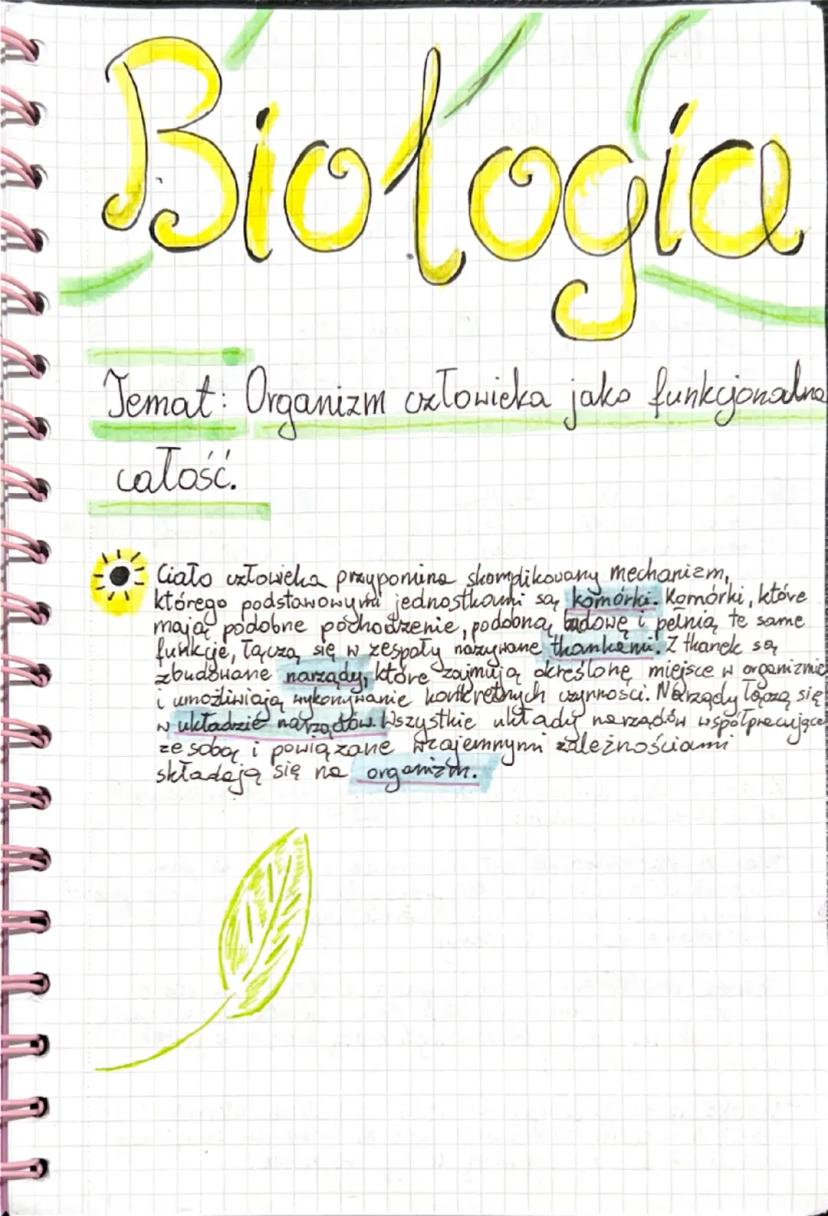 Biologia
Temat: Organizm człowieka jako funkcjonalna
całość.
Ciało człowieka przypomina skomplikowany mechanizm,
którego podstawowymi jednostkami są komórki. Komórki, które
mają podobne pochodzenie, podobną budowę i pełnią te same
funkcje, łączą się w zespoły nazywane tkankami. Z tkanek są
zbudowane narządy, które zajmują określone miejsce w organizmie
i umożliwiają wykonywanie konkretnych czynności. Narządy łączą się
w układzie narządów. Wszystkie układy narządów współpracujące
ze sobą i powiązane wzajemnymi zależnościami
składają się na organizm.